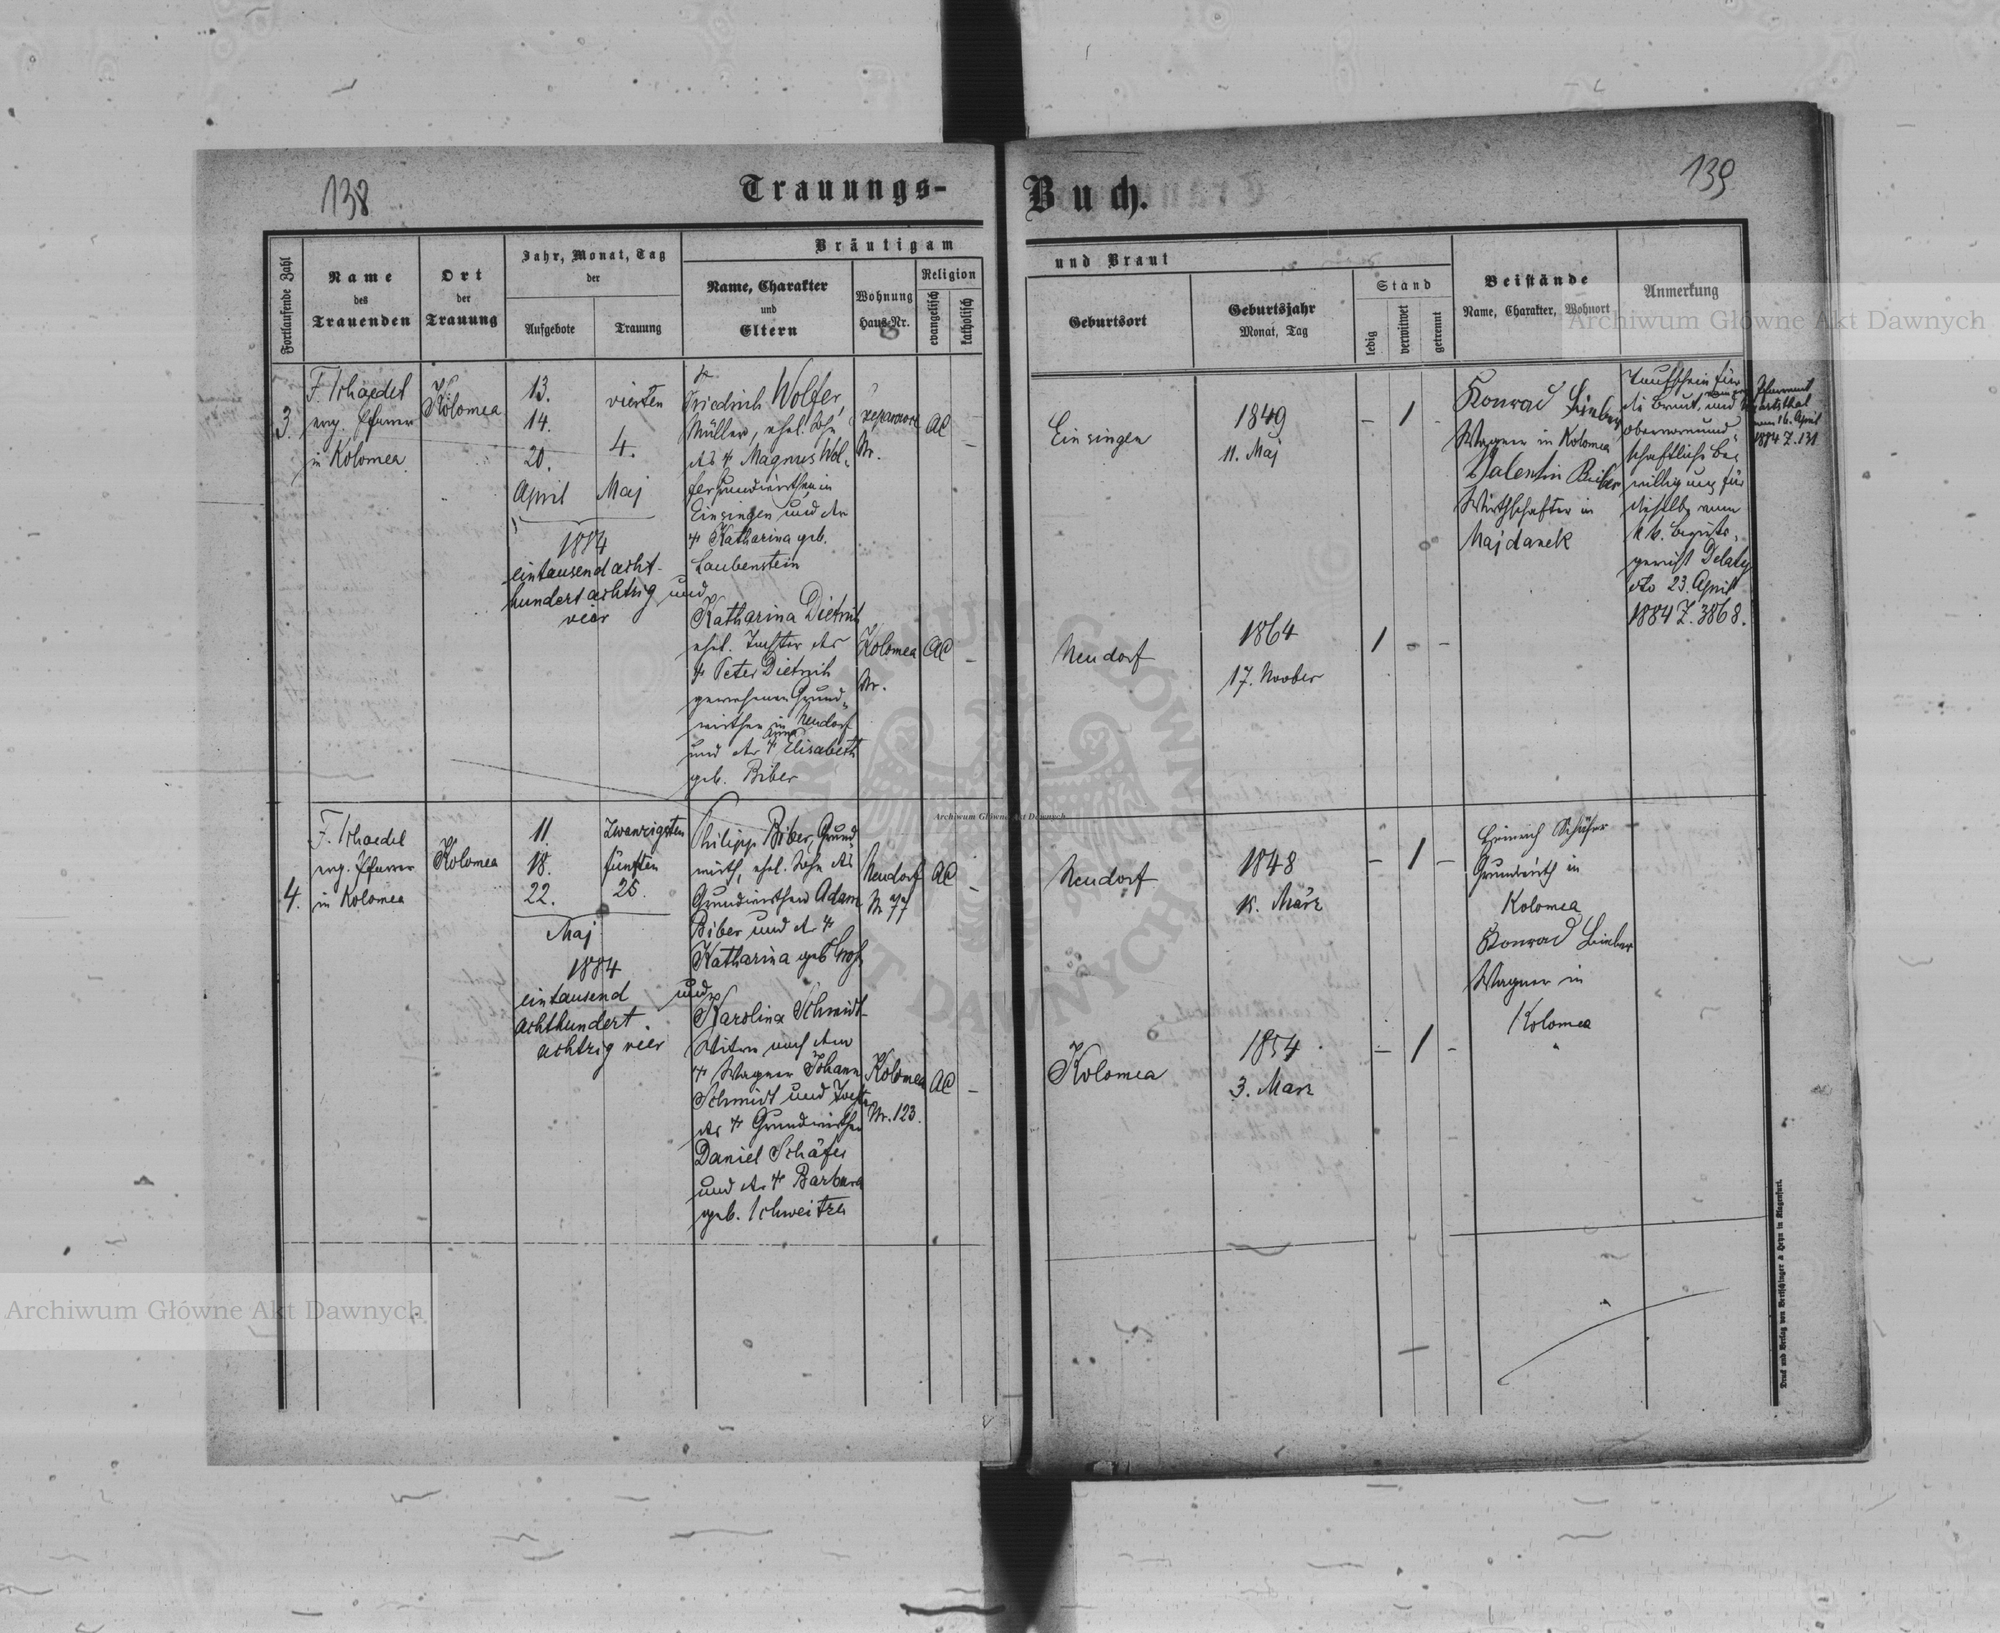 138
Trauungs-
Fortlaufende Zahl
Name
des
Trauenden
Ort
der
Trauung
Jahr, Monat, Tag
der
Aufgebote
Trauung
Bräutigam
Name, Charakter
und
Eltern
Wohnung
Haus-Nr.
Religion
evangelisch
katholisch
3.
F. Schaedel
evg. Pfarrer
in Kolomea
Kolomea
13.
14.
20.
April
vierten
4.
Maj
1884
eintausend acht-
hundert achtzig
vier
Friedrich Wolfer,
Müller, ehel. Sohn
des † Magnus Wol-
fer Grundwirthen in
Einsingen und der
† Katharina geb.
Laubenstein
und
Nr.
AC
–
Katharina Dietrich
ehel. Tochter des
† Peter Dietrich
gewesenen Grund-
wirthen in Neudorf
und der † Anna Elisabeth
geb. Biber
Kolomea
Nr.
AC
–
4.
F. Schaedel
evg. Pfarrer
in Kolomea
Kolomea
11.
18.
22.
Maj
zwanzigsten
fünften
25.
1884
eintausend
achthundert
achtzig vier
Philipp Biber, Grund-
wirth, ehel. Sohn des
Grundwirthen Adam
Biber und der †
Katharina geb.
und
Neudorf
Nr 77
AC
–
Karolina Schmidt
Witwe nach dem
† Wagner Johann
Schmidt und Tochter
des † Grundwirthen
Daniel Schäfer
und der † Barbara
geb. Schweitzer
Kolomea
Nr. 123.
AC
–
139
Buch.
und Braut
Geburtsort
Geburtsjahr
Monat, Tag
Stand
ledig
verwitwet
getrennt
Beistände
Name, Charakter, Wohnort
Anmerkung
Einsingen
1849
11. Maj
– 1
Konrad
Wagner in Kolomea
Valentin Biber
Wirthschafter in
Majdanek
Taufschein für
die Braut, und
obervormund-
schaftliche Be-
willigung für
dieselbe vom
k. k. Bezirks-
gericht Delatyn
dto 23. April
1884 Z. 3868.
Pfarramt
vom 16. April
1884 Z. 131
Neudorf
1864
17. Novber
1 – –
Neudorf
1848
15. März
– 1 –
Heinrich Schäfer
Grundwirth in
Kolomea
Konrad
Wagner in
Kolomea
Kolomea
1854
3. März
– 1 –
Druck und Verlag von Bertschinger & Heyn in Klagenfurt.
Archiwum Główne Akt Dawnych
Archiwum Główne Akt Dawnych
Archiwum Główne Akt Dawnych
ARCHIWUM GŁÓWNE AKT DAWNYCH